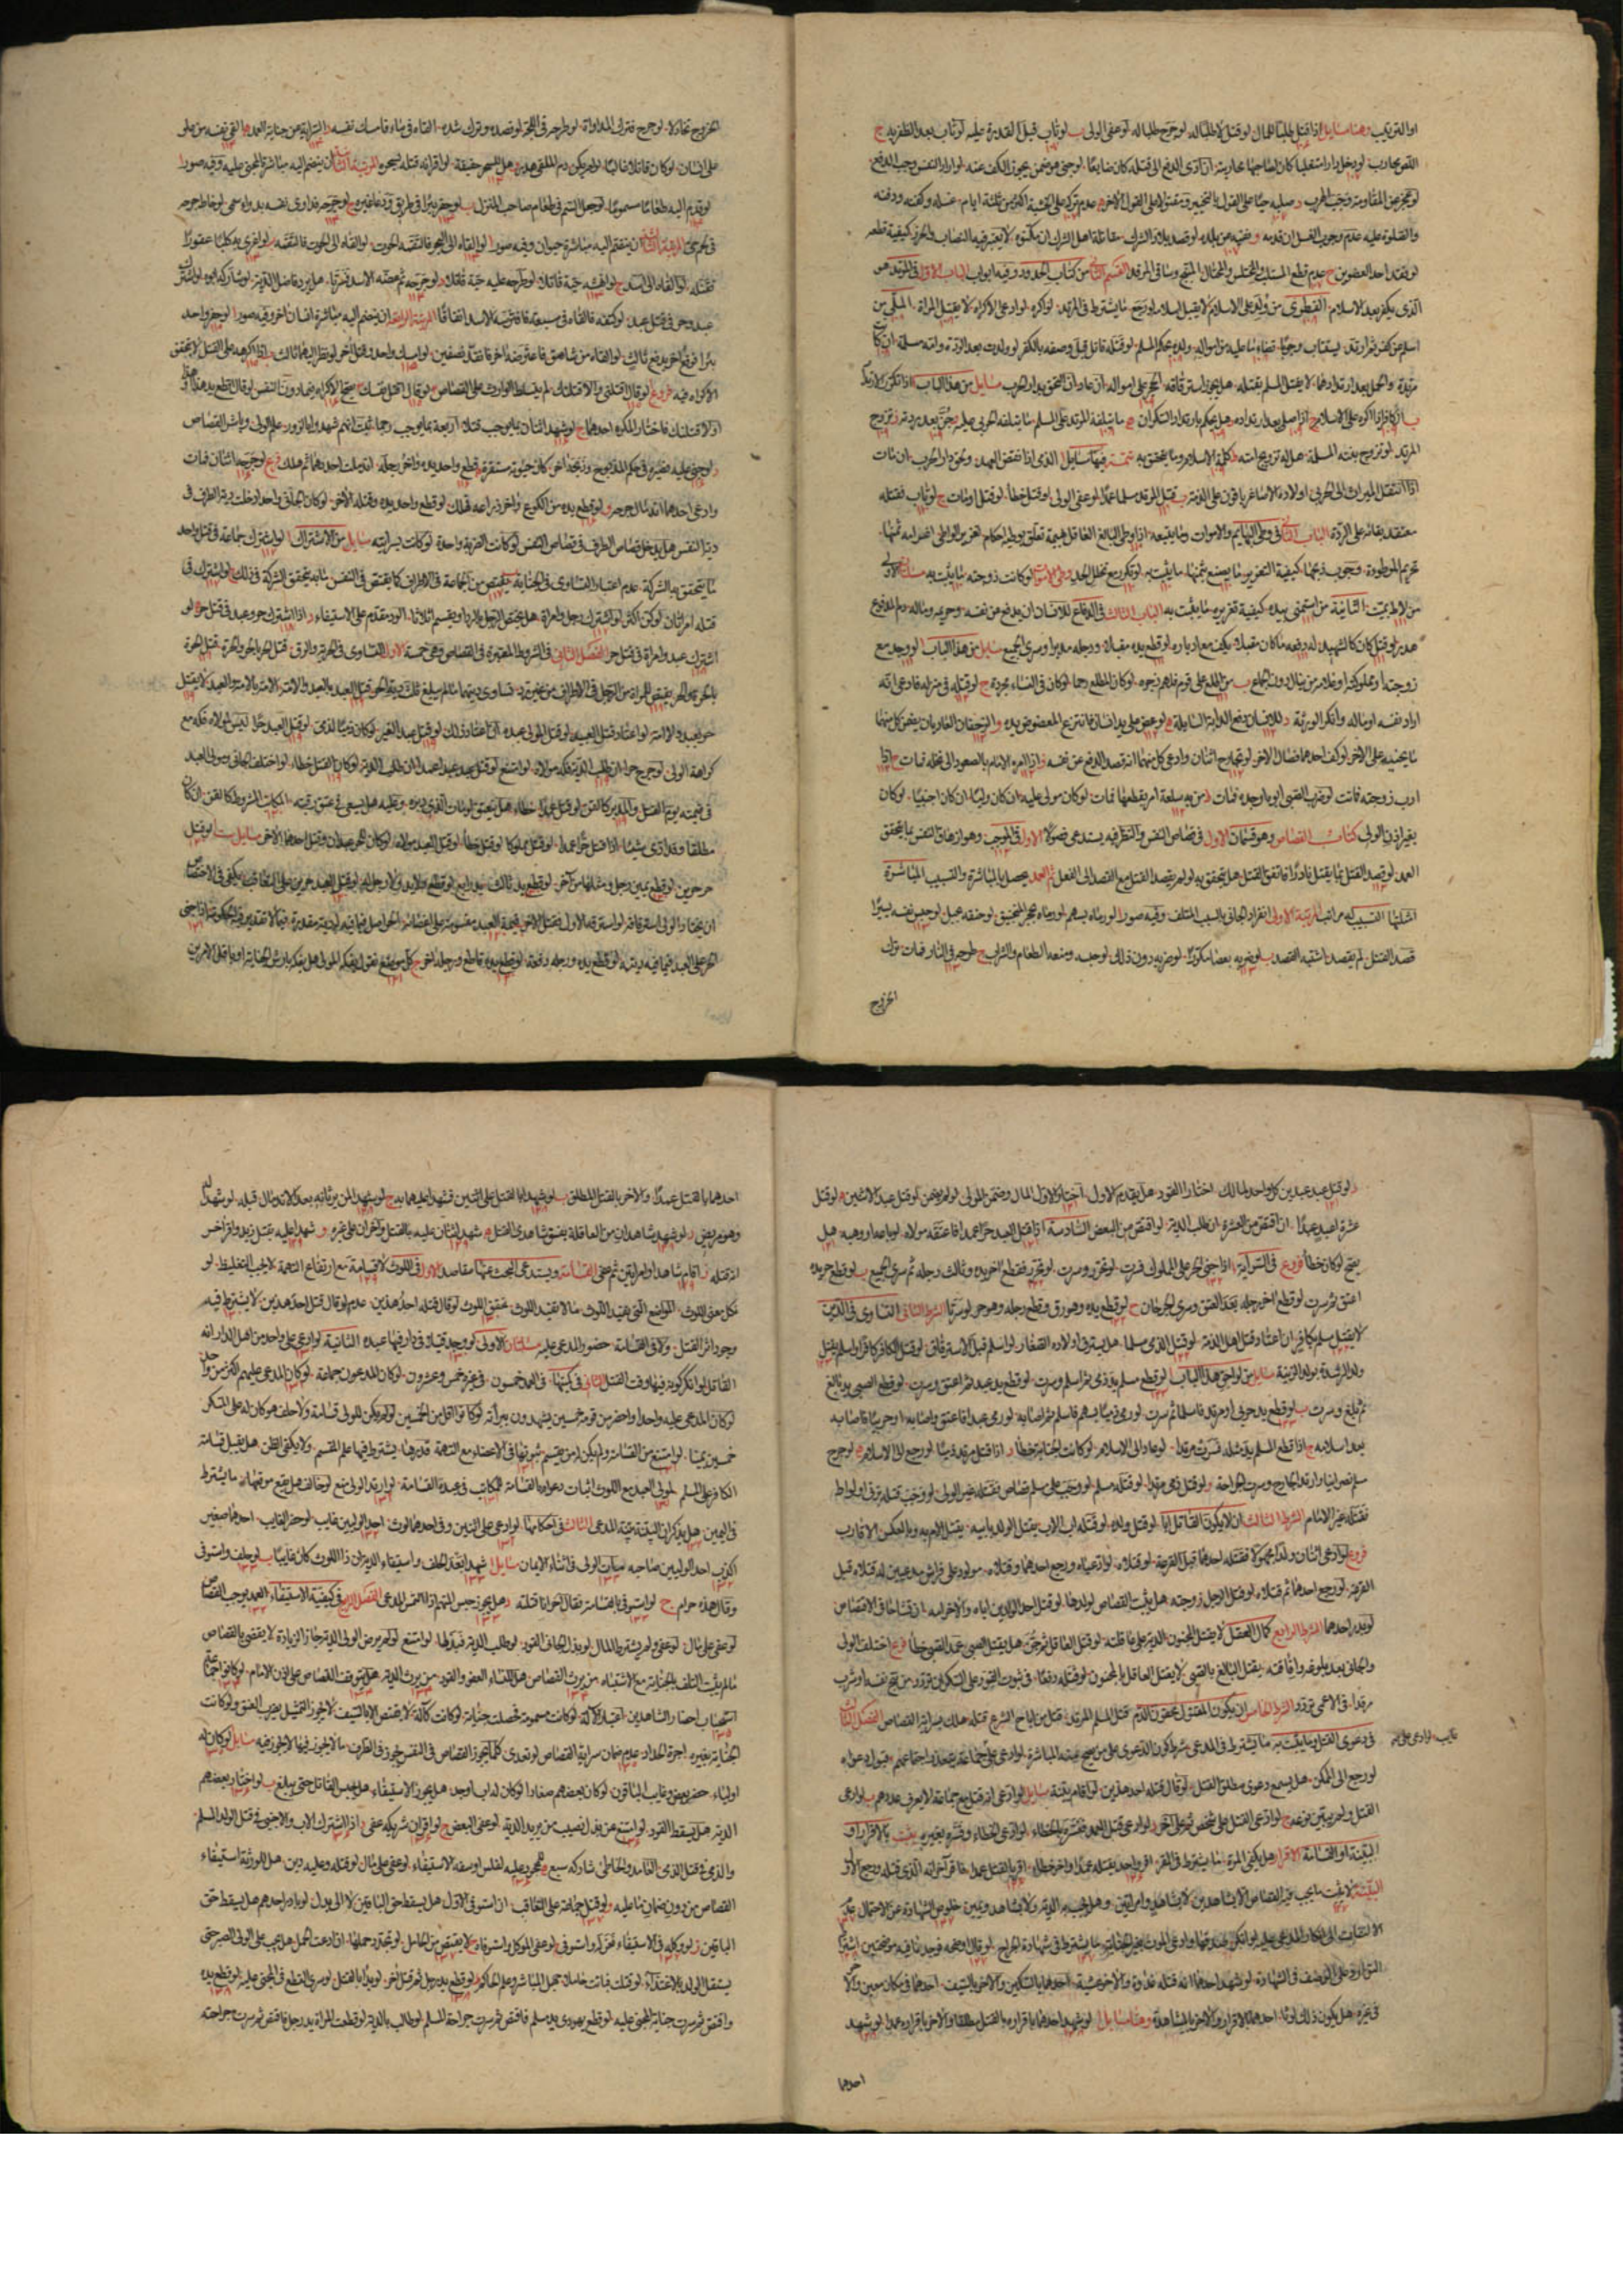 او الترتيب وهنا مسايل ا اذا قتل طلبا للمال لو قتل لا طلبا له لو جرح طلبا له لو عفى الولى ب لو تاب قبل القدرة عليه لو تاب بعد الظفر به ج
اللص محارب لو دخل دارا متغلبا كان لصاحبها محاربته ان ادى الدفع الى قتله كان ضايعا لو جنى هو ضمن يجوز الكف عنه لو اراد النفس وجب الدفع
لو عجز عن المقاومة وجب الهرب د صلبه حيا على القول بالتخيير ومقتولا على القول الآخر ه عدم تركه على الخشبة اكثر من ثلثة ايام غسله وكفنه ودفنه
والصلوة عليه عدم وجوب الغسل ان قدمه و نفيه من بلده لو قصد بلاد الشرك مقاتلة اهل الشرك ان مكنوه لا يعتبر فيه النصاب والحرز كيفية قطعه
لو فقد احد العضوين ح عدم قطع المستلب والمختلس والمحتال المبنج وساقى المرقد القسم الثانى من كتاب الحدود وفيه ابواب الباب الاول فى المرتد هو
الذى يكفر بعد الاسلام الفطرى من ولد على الاسلام لا يقبل اسلامه لو رجع ما يشترط فى المرتد لو اكره لو ادعى الاكراه لا يقتل المراة الملى من
اسلم عن كفر ثم ارتد يستتاب وجوبا قضاء ما عليه من امواله ولده بحكم المسلم لو قتله قاتل قبل وصفه بالكفر لو ولدت بعد الردة وامه مسلمة ان كانت
مرتدة والحمل بعد ارتدادهما لا يقتل المسلم بقتله هل يجوز استرقاقه الحجر على امواله ان عاد ان التحق بدار الحرب مسايل من هذا الباب ا اذا تكرر الارتداد
ب الكافر اذا اكره على الاسلام ج اذا صلى بعد ارتداده هل يحكم بارتداد السكران ه ما يتلفه المرتد على المسلم ما يتلفه الحربى و لو جن بعد ردته ز تزويج
المرتد لو تزوج بنته المسلمة هل له تزويج امته ح كلمة الاسلام وما يتحقق به تتمة فيها مسايل ا الذمى اذا نقض العهد ولحق دار الحرب ان مات
اذا انتقل الميراث الى الحربى اولاده الاصاغر باقون على الذمة ب قتل المرتد مسلما عمدا لو عفى الولى لو قتل خطأ لو قتل او مات ج لو تاب فقتله
معتقد بقائه على الردة الباب الثانى فى وطى البهايم والاموات وما يتبعه اذا وطى البالغ العاقل بهيمة تعلق بوطيه احكام تعزير الواطى اغرامه ثمنها
تحريم الموطوءة وجوب ذبحها كيفية التعزير ما يصنع بثمنها ما يثبت به لو تكرر مع تخلل الحد وطى الاموات لو كانت زوجته ما يثبت به مسايل الاولى
من لاط بميت الثانية من استمنى بيده كيفية تعزيره ما يثبت به الباب الثالث فى الدفاع للانسان ان يدفع عن نفسه وحريمه وماله دم المدفوع
هدر لو قتل كان كالشهيد له دفعه ما كان مقبلا يكف مع ادباره لو قطع يده مقبلا ورجله مدبرا وسرى الجميع مسايل من هذا الباب ا لو وجد مع
زوجته او مملوكته او غلامه من ينال دون الجماع ب من اطلع على قوم فلهم زجره لو كان المطلع رحما لو كان فى النساء مجردة ج لو قتله فى منزله فادعى انه
اراد نفسه او ماله وانكر الورثة د للانسان دفع الدابة الصايلة ه لو عض على يد انسان فانتزع المعضوض يده و الزحفان العاديان يضمن كل منهما
ما يجنيه على الاخر لو كف احدهما فصال الاخر لو تجارح اثنان وادعى كل منهما انه قصد الدفع عن نفسه ز اذا امره الامام بالصعود الى نخلة فمات ح اذا
ادب زوجته فماتت لو ضرب الصبى ابوه او جده فمات ط من به سلعة امر بقطعها فمات لو كان مولى عليه ان كان وليا ان كان اجنبيا لو كان
بغير اذن الولى كتاب القصاص وهو قسمان الاول فى قصاص النفس والنظر فيه يستدعى فصولا الاول فى الموجب وهو ازهاق النفس ما يتحقق
العمد لو قصد القتل بما يقتل نادرا فاتفق القتل هل يتحقق به لو لم يقصد القتل مع القصد الى الفعل ثم العمد يحصل بالمباشرة والتسبيب المباشرة
امثلتها التسبيب له مراتب المرتبة الاولى انفراد الجانى بالسبب المتلف وفيه صور ا لو رماه بسهم لو رماه بحجر المنجنيق لو خنقه بحبل لو حبس نفسه يسيرا
قصد القتل لم يقصد اشتبه القصد ب لو ضربه بعصا مكررا لو ضربه دون ذلك لو حبسه ومنعه الطعام والشراب ج طرحه فى النار فمات ترك
الخروج
الخروج تخاذلا لو جرح فترك المداواة لو طرحه فى اللجة لو فصده وترك شده القاه فى ماء فامسك نفسه د السراية عن جناية العمد ه القى نفسه من علو
على انسان لو كان قاتلا غالبا لو لم يكن دم الملقى هدر و هل للسحر حقيقة لو اقر انه قتله بسحره المرتبة الثانية ان ينضم اليه مباشرة المجنى عليه وفيه صور ا
لو قدم اليه طعاما مسموما لو جعل السم فى طعام صاحب المنزل ب لو حفر بئرا فى طريق ودعا غيره ج لو جرحه فداوى نفسه بدواء سمى لو خاط جرحه
فى لحم حى المرتبة الثالثة ان ينضم اليه مباشرة حيوان وفيه صور ا لو القاه الى البحر فالتقمه الحوت لو القاه الى الحوت فالتقمه ب لو اغرى به كلبا عقورا
فقتله لو القاه الى اسد ج لو انهشه حية قاتلا لو طرح عليه حية قاتلة د لو جرحه ثم عضه الاسد فسرتا هل يرد فاضل الدية لو شاركه ابوه لو اشترك
عبد وحر فى قتل عبد لو كتفه فالقاه فى مسبعة فافترسه الاسد اتفاقا المرتبة الرابعة ان ينضم اليه مباشرة انسان آخر وفيه صور ا لو حفر واحد
بئرا فوقع آخر بدفع ثالث لو القاه من شاهق فاعترضه آخر فقده نصفين لو امسك واحد وقتل آخر لو نظر اليهما ثالث ب اذا اكرهه على القتل لا يتحقق
الاكراه فيه فروع لو قال اقتلنى والا قتلتك لم يتسلط الوارث على القصاص لو قال اقتل نفسك صح الاكراه فيما دون النفس لو قال اقطع يد هذا او هذا
او لاقتلنك فاختار المكره احدهما ج لو شهد اثنان بما يوجب قتلا اربعة بما يوجب رجما ثبت انهم شهدوا بالزور علم الولى وباشر القصاص
د لو جنى عليه فصيره فى حكم المذبوح وذبحه آخر كان حيوته مستقرة ه قطع واحد يده وآخر رجله اندملت احداهما ثم هلك فرع لو جرحه اثنان فمات
وادعى احدهما اندمال جرحه و لو قطع يده من الكوع وآخر ذراعه فهلك لو قطع واحد يده وقتله الآخر لو كان الجانى واحدا دخلت دية الطرف فى
دية النفس هل يدخل قصاص الطرف فى قصاص النفس لو كانت الضربة واحدة لو كانت بسرايته مسايل من الاشتراك ا لو اشترك جماعة فى قتل واحد
ما يتحقق به الشركة عدم اعتبار التساوى فى الجناية ب يقتص من الجماعة فى الاطراف كما يقتص فى النفس ما به تتحقق الشركة فى ذلك ج لو اشترك فى
قتله امراتان لو كن اكثر لو اشترك رجل وامراة هل يختص الرجل بالرد او يقسم اثلاثا الرد مقدم على الاستيفاء د اذا اشترك حر وعبد فى قتل حر ه لو
اشترك عبد وامراة فى قتل حر الفصل الثانى فى الشروط المعتبرة فى القصاص وهى خمسة الاول التساوى فى الحرية والرق قتل الحر بالحر والحرة قتل الحرة
بالحرة والحر يقتص للمراة من الرجل فى الاطراف من غير رد تساوى ديتهما ما لم يبلغ ثلث دية الحر قتل العبد بالعبد والامة الامة بالامة والعبد لا يقتل
حر بعبد ولا امة لو اعتاد قتل العبيد لو قتل المولى عبده ان اعتاد ذلك لو قتل عبد الغير لو كان ذميا لذمى لو قتل العبد حرا ليس لمولاه فكه مع
كراهة الولى لو جرح حرا ان طلب الدية فكه مولاه لو امتنع لو قتل عبد عبدا عمدا ان طلب الدية لو كان القتل خطأ لو اختلف الجانى ومولى العبد
فى قيمته يوم القتل و المدبر كالقن لو قتل عمدا خطأ هل ينعتق لو مات الذى دبره وعليه هل يسعى فى عتق رقبته المكاتب المشروط كالقن ان كان
مطلقا وقد ادى شيئا اذا قتل حرا عمدا لو قتل مملوكا لو قتل خطأ لو قتل العبد مولاه لو كان للحر عبدان وقتل احدهما الآخر مسايل ست ا لو قتل
حر حرين لو قطع يمين رجل ومثلها من آخر لو قطع يد ثالث يد رابع لو قطع ولا يد ولا رجل له لو قتل العبد حرين على التعاقب يكفى فى الاختصاص
ان يختار الولى استرقاقه لو استرقه الاول فقتل الآخر قيمة العبد مقسومة على اعضائه الحر اصل فيما فيه دية مقدرة فيما لا تقدير فيه الحكومة اذا جنى
الحر على العبد فيما فيه ديته لو قطع يده ورجله دفعة لو قطع يده قاطع ورجله آخر ج كل موضع نقول يفكه المولى هل يفكه بارش الجناية او باقل الامرين
د لو قتل عبد عبدين كل واحد لمالك اختارا القود هل يقدم الاول اختار الاول المال وضمن المولى لو لم يضمن لو قتل عبد لاثنين ه لو قتل
عشرة اعبد عبدا ان اقتص من العشرة ان طلب الدية لو اقتص من البعض السادسة اذا قتل العبد حرا عمدا فاعتقه مولاه لو باعه او وهبه هل
يصح لو كان خطأ فروع فى السراية ا اذا جنى الحر على المملوك فسرت لو تحرر وسرت لو تحرر فقطع آخر يده وثالث رجله ثم سرى الجميع ب لو قطع حر يده
اعتق ثم سرت لو قطع آخر رجله بعد العتق وسرى الجرحان ح لو قطع يده وهو رق وقطع رجله وهو حر لو سرتا الشرط الثانى التساوى فى الدين
لا يقتل مسلم بكافر ان اعتاد قتل اهل الذمة لو قتل الذمى مسلما هل يسترق اولاده الصغار لو اسلم قبل الاسترقاق لو قتل الكافر كافرا واسلم يقتل
ولد الرشدة بولد الزنية مسايل من لواحق هذا الباب ا لو قطع مسلم يد ذمى ثم اسلم وسرت لو قطع يد عبد ثم اعتق وسرت لو قطع الصبى يد بالغ
ثم بلغ وسرت ب لو قطع يد حربى او مرتد فاسلما ثم سرت لو رمى ذميا بسهم فاسلم ثم اصابه لو رمى عبدا فاعتق واصابه او حربيا فاصابه
بعد اسلامه ج اذا قطع المسلم يد مثله فسرت مرتدا لو عاد الى الاسلام لو كانت الجناية خطأ د اذا قتل مرتد ذميا لو رجع الى الاسلام ه لو جرح
مسلم نصرانيا وارتد الجارح وسرت الجراحة و لو قتل ذمى مرتدا لو قتله مسلم لو وجب على مسلم قصاص فقتله غير الولى لو وجب قتله بزنى او لواط
فقتله غير الامام الشرط الثالث ان لا يكون القاتل ابا لو قتل ولده لو قتله اب الاب يقتل الولد بابيه يقتل الام به وبالعكس الاقارب
فروع لو ادعى اثنان ولدا مجهولا فقتله احدهما قبل القرعة لو قتلاه لو ادعياه ورجع احدهما وقتلاه مولود على فراش مدعيين له قتلاه قبل
القرعة لو رجع احدهما ثم قتلاه لو قتل الرجل زوجته هل يثبت القصاص لولدها لو قتل احد الولدين اباه والآخر امه ان تشاحا فى الاقتصاص
لو بدر احدهما الشرط الرابع كمال العقل لا يقتل المجنون الدية على عاقلته لو قتل العاقل ثم جن هل يقتل الصبى عمد الصبى خطأ فرع اختلف الولى
والجانى بعد بلوغه وافاقته يقتل البالغ بالصبى لا يقتل العاقل بالمجنون لو قتله دفعا فى ثبوت القود على السكران تردد من بنج نفسه او شرب
مرقدا فى الاعمى تردد الشرط الخامس ان يكون المقتول محقون الدم قتل المسلم المرتد قتل من اباح الشرع قتله هلك بسراية القصاص الفصل الثالث
فى دعوى القتل وما يثبت به ما يشترط فى المدعى شرط كون الدعوى على من يصح منه المباشرة لو ادعى على جماعة يتعذر اجتماعهم قبول دعواه
لو رجع الى الممكن هل يسمع دعوى مطلق القتل لو قال قتله احد هذين لو اقام بينة مسايل ا لو ادعى انه قتل مع جماعة لا يعرف عددهم ب لو ادعى
القتل ولم يبين نوعه ج لو ادعى القتل على شخص ثم على آخر د لو ادعى قتل العمد ففسره بالخطاء لو ادعى الخطاء وفسره بغيره يثبت بالاقرار او
البينة او القسامة الاقرار هل يكفى المرة ما يشترط فى المقر اقر واحد بقتله عمدا وآخر خطأ اقر بالقتل عمدا فاقر آخر انه الذى قتله ورجع الاول
البينة لا يثبت ما يجب فيه القصاص الا بشاهدين لا بشاهد وامراتين وهل يجب به الدية ولا بشاهد ويمين خلوص الشهادة عن الاحتمال عدم
الالتفات الى انكار المدعى عليه
التوارد على الوصف فى الشهادة لو شهد احدهما انه قتله غدوة والآخر عشية احدهما بالسكين والآخر بالسيف احدهما فى مكان معين والآخر
فى غيره هل يكون ذلك لوثا احدهما بالاقرار والآخر بالمشاهدة وهنا مسايل ا لو شهد احدهما باقراره بالقتل مطلقا والآخر باقراره عمدا لو شهد
احدهما
احدهما بالقتل عمدا والآخر بالقتل المطلق ب لو شهدا بالقتل على اثنين فشهدا عليهما به ج لو شهدا لمن يرثانه بعد الاندمال قبله لو شهدا له
وهو مريض د لو شهد شاهدان من العاقلة بفسق شاهدى القتل ه شهد اثنان عليه بالقتل وآخران على غيره و شهدا عليه بقتل زيد واقر آخر
انه قتله ز اقام شاهدا وامراتين ثم عفى القسامة ويستدعى البحث عنها مقاصد الاول فى اللوث لا قسامة مع ارتفاع التهمة لا يجب التغليظ لو
نكل معنى اللوث المواضع التى يفيد اللوث ما لا يفيد اللوث تحقق اللوث لو قال قتله احد هذين عدمه لو قال قتل احد هذين لا يشترط فيه
وجود اثر القتل ولا فى القسامة حضور المدعى عليه مسئلتان الاولى لو وجد قتيلا فى دار فيها عبده الثانية لو ادعى على واحد من اهل الدار انه
القاتل لو انكر كونه فيها وقت القتل الثانى فى كميتها فى العمد خمسون فى غيره خمس وعشرون لو كان المدعون جماعة لو كان المدعى عليهم اكثر من واحد
لو كان المدعى عليه واحدا واحضر من قومه خمسين يشهدون ببراءته لو كانوا اقل من الخمسين لو لم يكن للولى قسامة ولا حلف هو كان له على المنكر
خمسين يمينا لو امتنع من القسامة ولم يكن له من يقسم ثبوتها فى الاعضاء مع التهمة قدرها يشترط فيها علم المقسم ولا يكفى الظن هل يقبل قسامة
الكافر على المسلم لمولى العبد مع اللوث اثبات دعواه بالقسامة للمكاتب فى عبده القسامة لو ارتد الولى منع لو خالف هل يقع موقعها ما يشترط
فى اليمين هل يذكر ان النية نية المدعى الثالث فى احكامها لو ادعى على اثنين وفى احدهما لوث احد الوليين غايب لو حضر الغايب احدهما صغير
اكذب احد الوليين صاحبه مات الولى فى اثناء الايمان مسايل ا شهدا بعد الحلف واستيفاء الدية ان ذا اللوث كان غايبا ب لو حلف واستوفى
وقال هذه حرام ج لو استوفى بالقسامة فقال آخر انا قتلته د هل يجوز حبس المتهم اذا التمس المدعى الفصل الرابع فى كيفية الاستيفاء العمد يوجب القصاص
لو عفى على مال لو عفى ولم يشترط المال لو بذل الجانى القود لو طلب الدية فبذلها لو امتنع لو لم يرض الولى بالدية جاز الزيادة لا يقضى بالقصاص
ما لم يثبت التلف بالجناية مع الاشتباه من يرث القصاص هل للنساء العفو والقود من يرث الدية هل يتوقف القصاص على اذن الامام لو كانوا جماعة
استحباب احضار الشاهدين اعتبار الآلة لو كانت مسمومة فحصلت جناية لو كانت كالة لا يقتص الا بالسيف لا يجوز التمثيل يضرب العنق ولو كانت
الجناية بغيره اجرة الحداد عدم ضمان سراية القصاص لو تعدى كلما يجوز القصاص فى النفس يجوز فى الطرف ما لا يجوز فيها لا يجوز فيه مسايل ا لو كان له
اولياء حضر بعض وغاب الباقون لو كان بعضهم صغارا لو كان له اب او جد هل يجوز الاستيفاء هل يحبس القاتل حتى يبلغ ب لو اختار بعضهم
الدية هل يسقط القود لو امتنع من بذل نصيب من يريد الدية لو عفى البعض ج لو اقر ان شريكه عفى د اذا اشترك الاب والاجنبى فى قتل الولد المسلم
والذمى فى قتل الذمى العامد والخاطى شاركه سبع ه للمحجور عليه لفلس او سفه الاستيفاء لو عفى على مال لو قتله وعليه دين هل للورثة استيفاء
القصاص من دون ضمان ما عليه و لو قتل جماعة على التعاقب ان استوفى الاول هل يسقط حق الباقين لا الى بدل لو بادر احدهم هل يسقط حق
الباقين ز لو وكله فى الاستيفاء فعزله واستوفى لو عفى الموكل واستوفى ح لا يقتص من الحامل لو تجدد حملها اذا ادعت الحمل هل يجب على الولى الصبر حتى
يستقل الولد بالاغتذاء لو قتلت فبانت حاملا جهل المباشر وعلم الحاكم ط لو قطع يد رجل ثم قتل آخر لو بدا بالقتل لو سرى القطع فى المجنى عليه لو قطع يده
واقتص ثم سرت جناية المجنى عليه لو قطع يهودى يد مسلم فاقتص ثم سرت جراحة المسلم لو طالب بالدية لو قطعت المراة يد رجل فاقتص ثم سرت جراحته